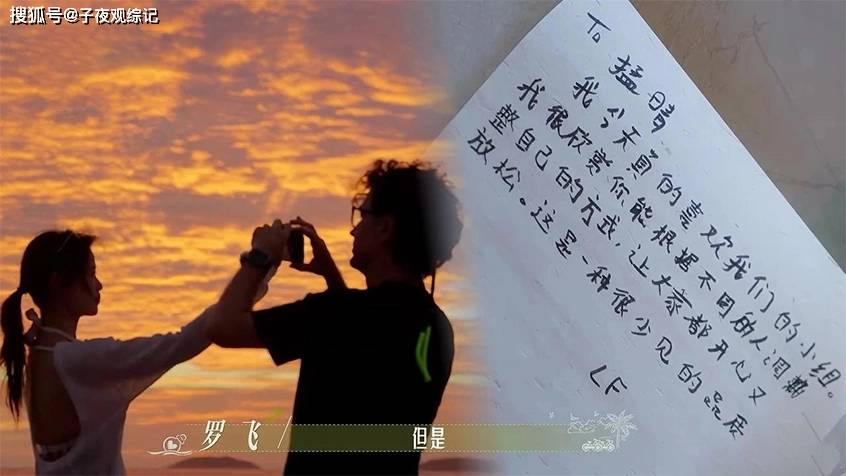 搜狐号@子夜观综记
To 猛晴
我今天真的喜欢我们的小组。
我很欣赏你能根据不同的人调
整自己的方式，让大家都开心又
放松。这是一种很少见的品质
LF
罗飞 / 但是